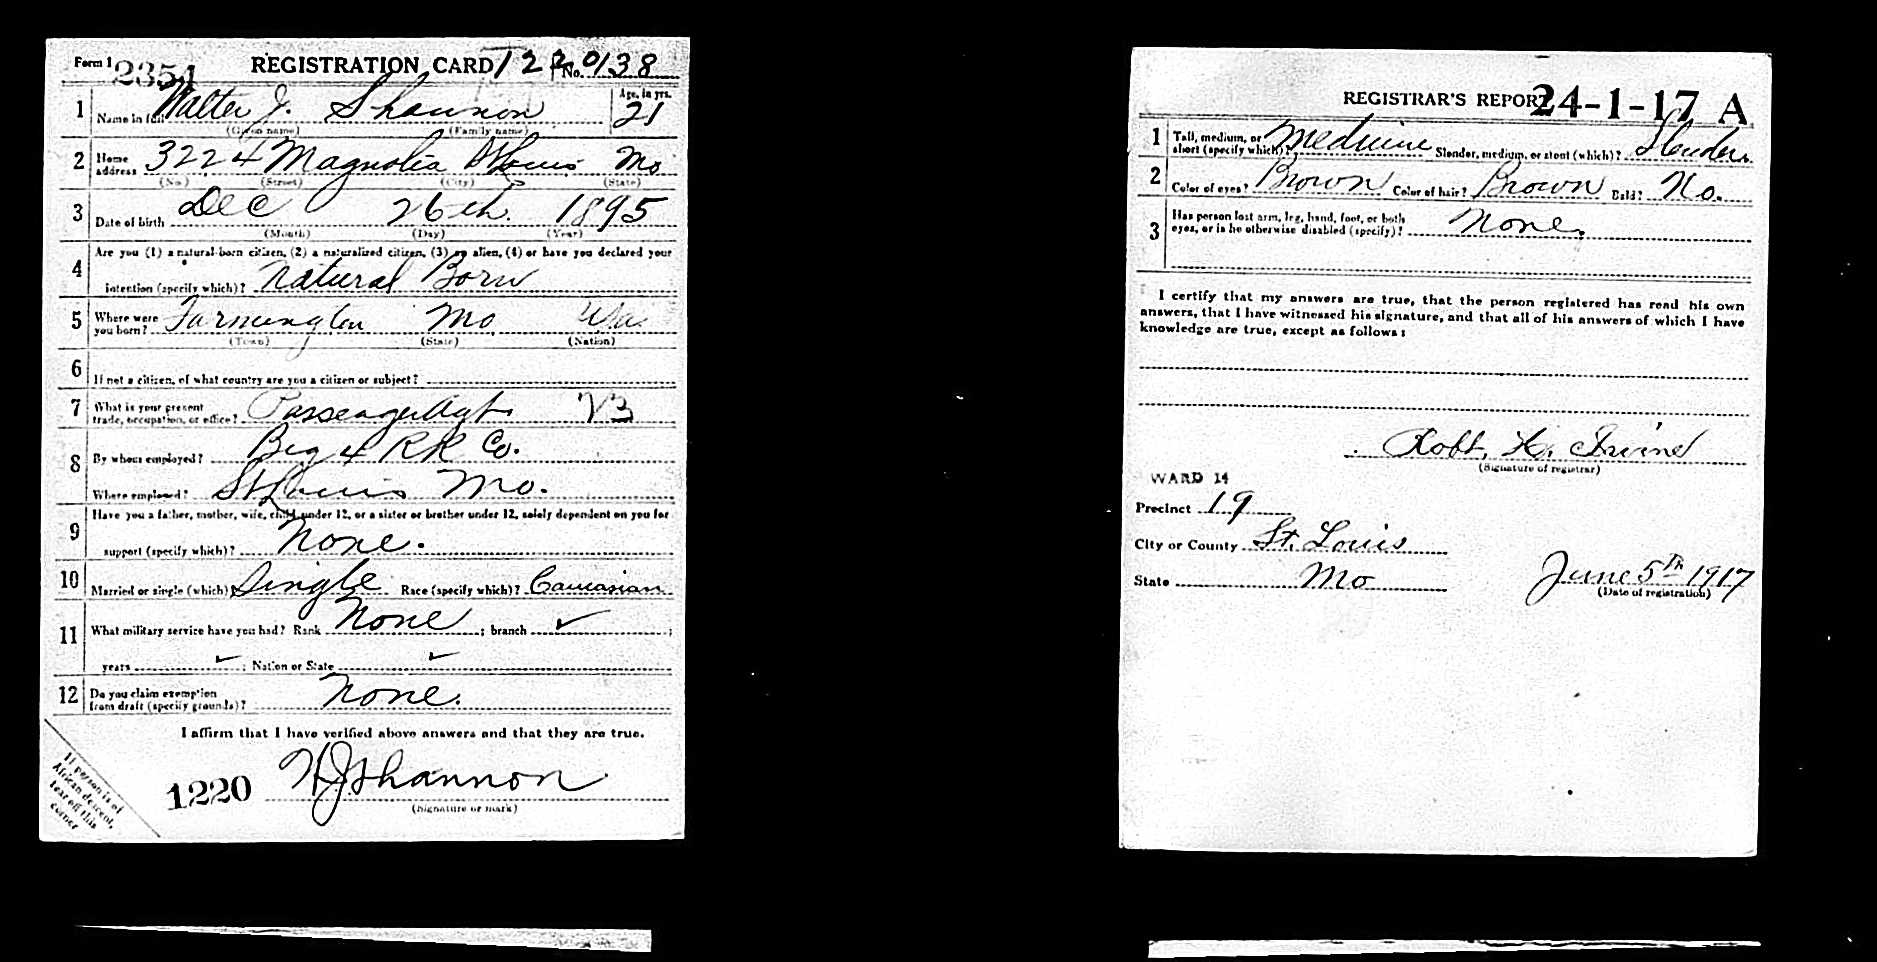 Form 1 2354 REGISTRATION CARD 1220 No. 138
1 Name in full Walter J. Shannon Age, in yrs. 21
(Given name) (Family name)
2 Home address 3224 Magnolia St Louis Mo
(No.) (Street) (City) (State)
3 Date of birth Dec 26th 1895
(Month) (Day) (Year)
4 Are you (1) a natural-born citizen, (2) a naturalized citizen, (3) an alien, (4) or have you declared your
intention (specify which)? Natural Born
5 Where were you born? Farmington Mo Usa
(Town) (State) (Nation)
6 If not a citizen, of what country are you a citizen or subject?
7 What is your present
trade, occupation, or office? Passenger Agt. 23
8 By whom employed? Big 4 RR Co.
Where employed? St Louis Mo.
9 Have you a father, mother, wife, child under 12, or a sister or brother under 12, solely dependent on you for
support (specify which)? None.
10 Married or single (which) Single Race (specify which)? Caucasian
11 What military service have you had? Rank None ; branch ✓ ;
years ✓ ; Nation or State ✓
12 Do you claim exemption
from draft (specify grounds)? None.
I affirm that I have verified above answers and that they are true.
1220 WJShannon
(Signature or mark)
If person is of
African descent,
tear off this
corner
REGISTRAR'S REPORT 24-1-17 A
1 Tall, medium, or
short (specify which)? Medium Slender, medium, or stout (which)? Slender
2 Color of eyes? Brown Color of hair? Brown Bald? No.
3 Has person lost arm, leg, hand, foot, or both
eyes, or is he otherwise disabled (specify)? None.
I certify that my answers are true, that the person registered has read his own
answers, that I have witnessed his signature, and that all of his answers of which I have
knowledge are true, except as follows:
Robt. H. Irvine
(Signature of registrar)
WARD 14
Precinct 19
City or County St. Louis
State Mo June 5th 1917
(Date of registration)